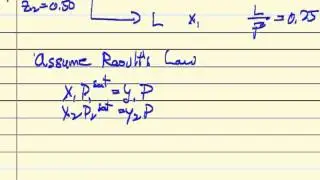 z₂=0.50
L x₁ L/F = 0.25
Assume Raoult's Law
x₁P₁ˢᵃᵗ = y₁P
x₂P₂ˢᵃᵗ = y₂P